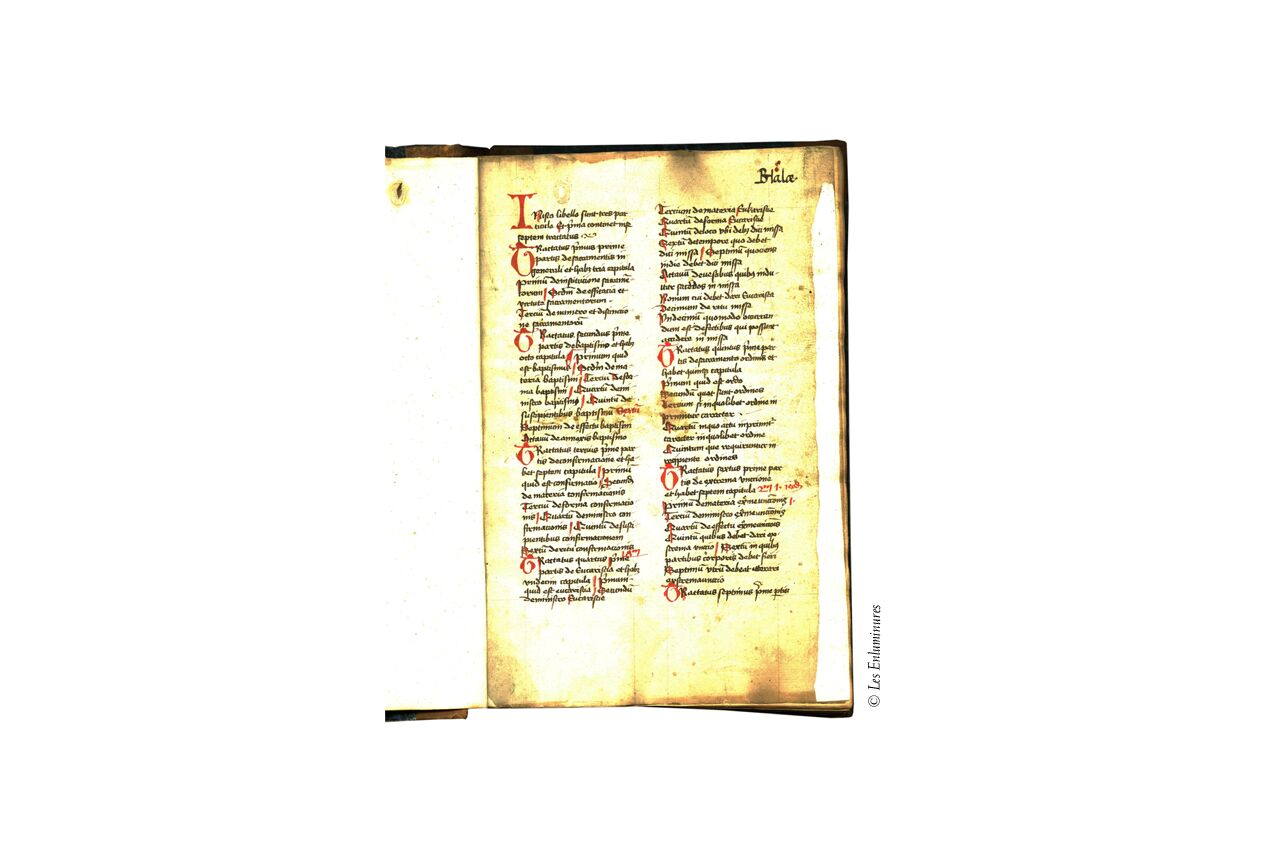 IN isto libello sunt tres par
ticule Et p̄ma continet in se
septem tractatus
TRactatus p̄mus prime
partis de sacramentis in
generali et habꝫ tria capitula
primū de institucione sacramē-
torum Scd̄m de efficatia et
virtute sacramentorum
Terciū de numero et distinctio
ne sacramentorū
TRactatus secundus p̄me
partis de baptismo et habꝫ
octo capitula Primum quid
est baptismus Scd̄m de ma-
teria baptismi Terciū de for
ma baptismi Quartū de mi
nistro baptismi Quintū de
suscipientibus baptismū Sextū
Septimum de effectu baptismi
Octauū de annexis baptismo
TRactatus tercius p̄me par
tis de confirmacione et ha
bet septem capitula primū
quid est confirmatio Secundū
de materia confirmacionis
Terciū de forma confirmacio
nis Quartū de ministro con
firmacionis Quintū de susci
pientibus confirmacionem
Sextū de ritu confirmacionis
TRactatus quartus p̄me
partis de Eucaristia et habꝫ
vndecim capitula Primum
quid est eucaristia Secundū
de ministro Eucaristie
Tercium de materia Eukaristie
Quartū de forma Eucaristie
Quintū de loco vbi debꝫ dici missa
Sextū de tempore quo debet
dici missa Septimū quociens
in die debet dici missa
Octauū de vestibus quibꝫ indu
itur sacerdos in missa
Nonum cui debet dari Eucaristia
Decimum de ritu missa
Vndecimū quomodo occurren
dum est defectibus qui possunt
accidere in missa
TRactatus quintus p̄me par
tis de sacramento ordinis et
habet quinqꝫ capitula
Primum quid est ordo
Secundū quot sunt ordines
Tercium si in quolibet ordine in
primitur caracter
Quartū in quo actu inprimitʳ
caracter in quolibet ordine
Quintum que requiruntur in
recipiente ordines
TRactatus sextus prime par
tis de extrema vnctione
et habet septem capitula
Primū de materia extreme unctionis
Terciū de ministro extreme unctionis
Quartū de effectu extreme unctionis
Quintū quibus debet dari ex
trema vnctio Sextū in quibꝫ
partibus corporis debet fieri
Septimū vtrū debeat iterari
extrema vnctio
TRactatus septimus p̄me p̄tis
© Les Enluminures